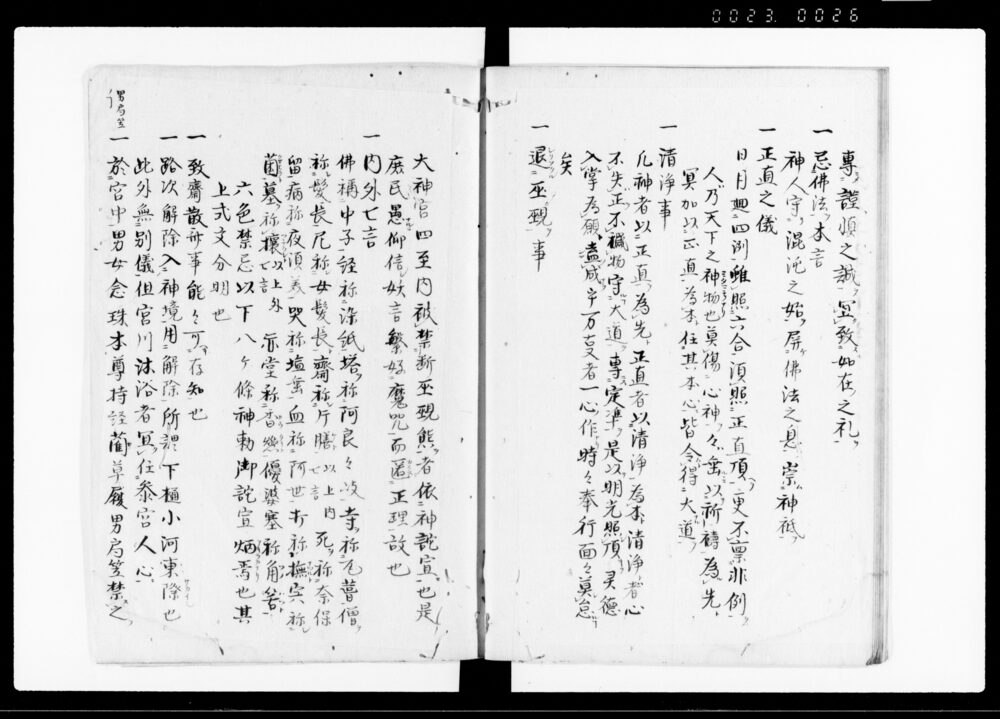 0023. 0026
専謹慎之誠宜致如在之礼
一 忌佛法本言
神人守混沌之始屏佛法之息崇神祇
一 正直之儀
日月廻四洲雖照六合須照正直頂更不禀非例
人乃天下之神物也莫傷心神々垂以祈祷為先
冥加以正直為本任其本心皆令得大道
一 清浄事
凡神者以正直為先正直者以清浄為本清浄者心
不失正不穢物守大道専定準是以明光照頂灵徳
入掌為願盖咸宇万支者一心作時々奉行面々莫怠
矣
一 退巫覡事
大神宮四至内被禁断巫覡熊者依神託宣也是
庶民愚仰信妖言繁好魔咒而匿正理故也
一 内外七言
佛称中子経称染紙塔称阿良々岐寺称瓦葺僧
称髪長尼称女髪長齋称片膳以上内七言死称奈保
留病称夜須美哭称塩垂血称阿世打称撫宍称
菌墓称壌以上外七言亦堂称香燃優婆塞称角筈
六色禁忌以下八ヶ條神勅御託宣炳焉也其
上式文分明也
一 致齋散齋事能々可存知也
一 路次解除入神境用解除所謂下樋小河東際也
此外無別儀但宮川沐浴者冥任参宮人心
一 於宮中男女念珠本尊持経藺草履男局笠禁之
男局笠